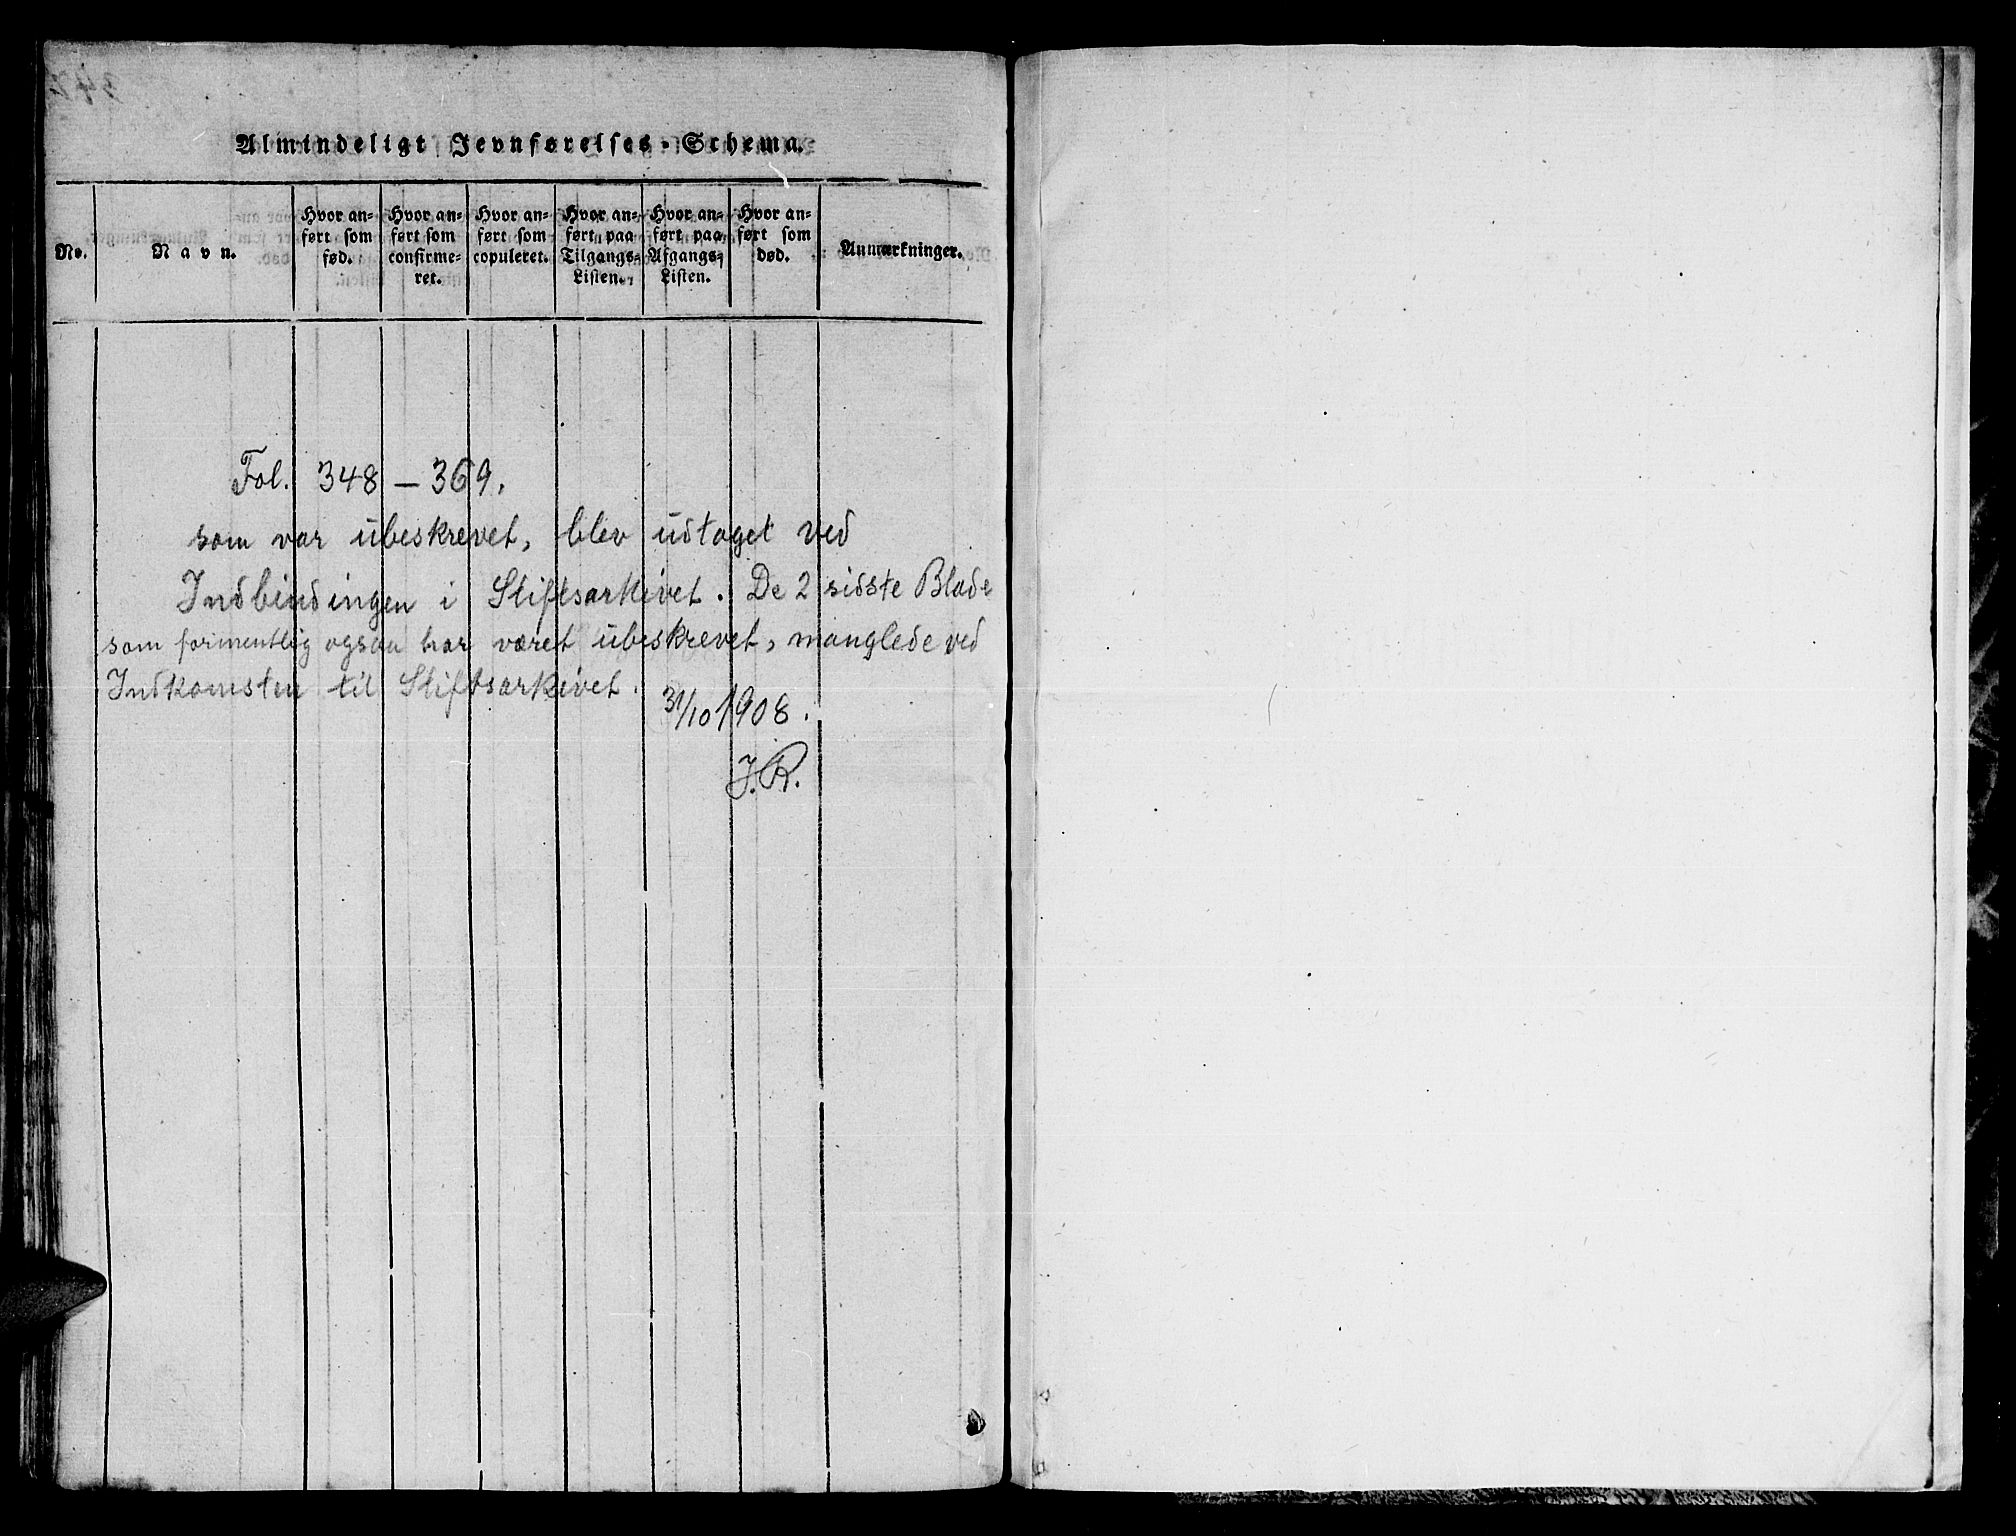 Almindeligt Jevnførelses-Schema.
No.
Navn.
Hvor an-
ført som
fød.
Hvor an-
ført som
confirme-
ret.
Hvor an-
ført som
copuleret.
Hvor an-
ført paa
Tilgangs-
Listen.
Hvor an-
ført paa
Afgangs-
Listen.
Hvor an-
ført som
død.
Anmærkninger.
Fol. 348 – 369.
som var ubeskrevet, blev udtaget ved
Indbindingen i Stiftsarkivet. De 2 sidste Blade
som formentlig ogsaa har været ubeskrevet, manglede ved
Indkomsten til Stiftsarkivet.
31/10 1908.
J.R.